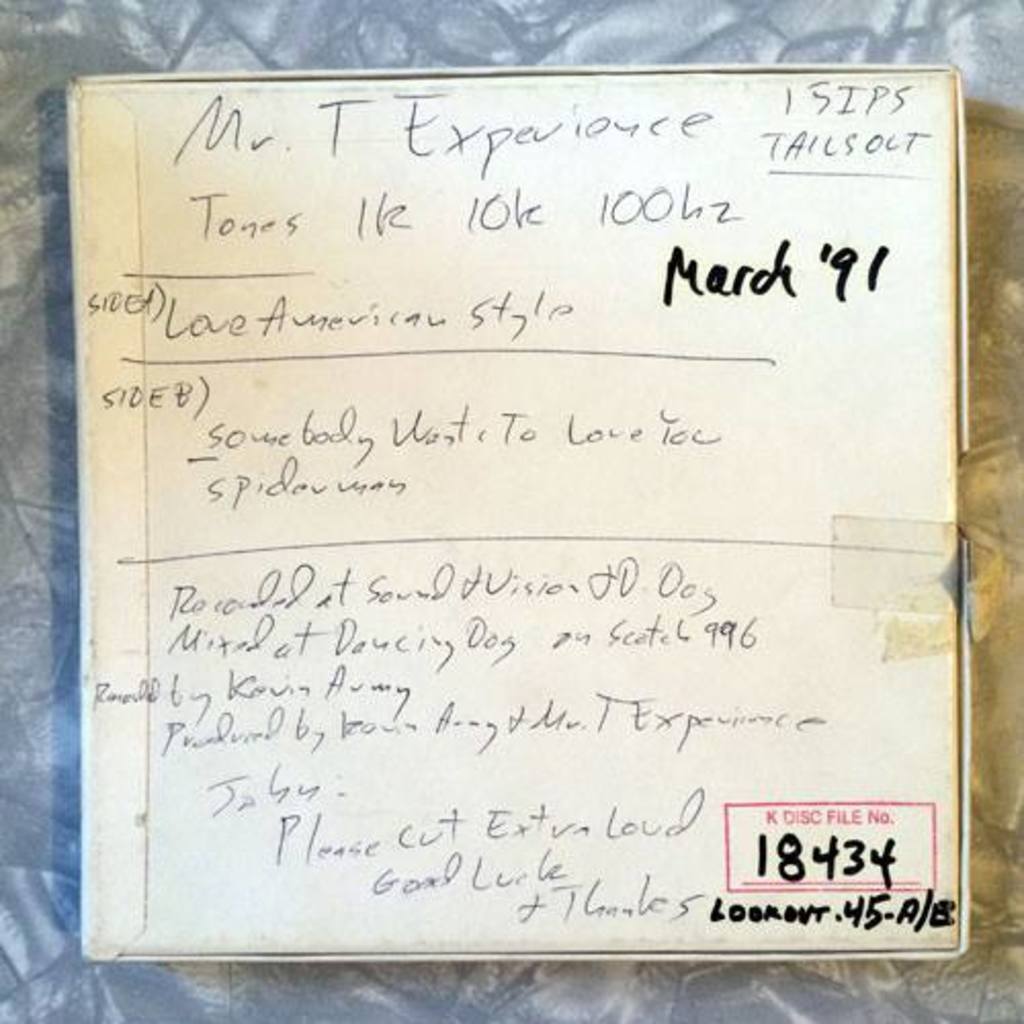 Mr. T Experience
15IPS
TAILSOUT
Tones 1k 10k 100hz
March '91
SIDE A) Love American Style
SIDE B)
Somebody Wants To Love You
Spiderman
Recorded at Sound & Vision & D. Dog
Mixed at Dancing Dog on Scotch 996
Recorded by Kevin Army
Produced by Kevin Army & Mr. T Experience
John:
Please cut Extra Loud
Good Luck
& Thanks
K DISC FILE No.
18434
LOOKOUT.45-A/B